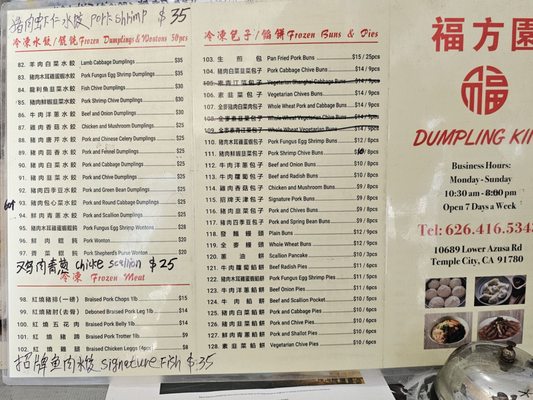 猪肉虾仁水饺 Pork Shrimp $35
冷凍水餃/餛飩 Frozen Dumplings & Wontons 50 pcs
82. 羊肉白菜水餃 Lamb Cabbage Dumplings $35
83. 豬肉木耳雞蛋蝦水餃 Pork Fungus Egg Shrimp Dumplings $35
84. 龍利魚韮菜水餃 Fish Chive Dumplings $35
85. 豬肉鮮蝦韮菜水餃 Pork Shrimp Chive Dumplings $30
86. 牛肉洋蔥水餃 Beef and Onion Dumplings $30
87. 雞肉香菇水餃 Chicken and Mushroom Dumplings $25
88. 豬肉唐芹水餃 Pork and Chinese Celery Dumplings $25
89. 豬肉茴香水餃 Pork and Fennel Dumplings $25
90. 豬肉白菜水餃 Pork and Cabbage Dumplings $25
91. 豬肉韮菜水餃 Pork and Chive Dumplings $25
92. 豬肉四季豆水餃 Pork and Green Bean Dumplings $25
93. 豬肉包心菜水餃 Pork and Round Cabbage Dumplings $25
94. 鮮肉青蔥水餃 Pork and Scallion Dumplings $25
95. 豬肉木耳雞蛋餛飩 Pork Fungus Egg Shrimp Wontons $28
96. 鮮肉餛飩 Pork Wonton $20
97. 青菜餛飩 Pork Shepherd's Purse Wonton $20
鸡肉青葱 Chike Scallion $25
冷凍 Frozen Meat
98. 紅燒豬排(一磅) Braised Pork Chops 1lb $15
99. 紅燒豬蹄(去骨) Deboned Braised Pork Leg 1lb $14
100. 紅燒五花肉 Braised Pork Belly 1lb $14
101. 紅燒豬蹄 Braised Pork Trotter $9
102. 紅燒雞腿 Braised Chicken Legges (4pcs) $8
招牌鱼肉水饺 Signature Fish $35
冷凍包子/餡餅 Frozen Buns & Pies
103. 生煎包 Pan Fried Pork Buns $15 / 25pcs
104. 豬肉白菜韮菜包子 Pork Cabbage Chive Buns $14 / 9pcs
105. 素青江菜包子 Vegetarian Shanghai Cabbage Buns $14 / 9pcs
106. 素韮菜包子 Vegetarian Chives Buns $14 / 9pcs
107. 全麥豬肉白菜包子 Whole Wheat Pork and Cabbage Buns $14 / 9pcs
108. 全麥素韮菜包子 Whole Wheat Vegetarian Chive Buns $14 / 9pcs
109. 全麥素青江菜包子 Whole Wheat Vegetarian Buns $14 / 9pcs
110. 豬肉木耳雞蛋蝦包子 Pork Fungus Egg Shrimp Buns $11 / 8pcs
111. 豬肉鮮蝦韮菜包子 Pork Shrimp Chive Buns / 8pcs
112. 牛肉洋蔥包子 Beef and Onion Buns $11 / 8pcs
113. 牛肉蘿蔔包子 Beef and Radish Buns $11 / 8pcs
114. 雞肉香菇包子 Chicken and Mushroom Buns $9 / 8pcs
115. 招牌天津包子 Signature Pork Buns $9 / 8pcs
116. 豬肉韮菜包子 Pork and Chives Buns $9 / 8pcs
117. 豬肉四季豆包子 Pork and Spring Bean Buns $9 / 8pcs
118. 發麵饅頭 Plain Buns $9 / 8pcs
119. 全麥饅頭 Whole Wheat Buns $9 / 8pcs
120. 蔥油餅 Scallion Pancake $10 / 5pcs
121. 牛肉蘿蔔餡餅 Beef and Radish Pies $11 / 6pcs
122. 豬肉木耳雞蛋蝦餡餅 Pork Fungus Egg Shrimp Pies $11 / 6pcs
123. 牛肉洋蔥餡餅 Beef and Onion Pies $11 / 6pcs
124. 牛肉餡餅 Beef and Scallion Pocket $10 / 6pcs
125. 豬肉白菜餡餅 Pork and Cabbage Pies $10 / 6pcs
126. 豬肉韮菜餡餅 Pork and Chive Pies $10 / 6pcs
127. 鮮肉青蔥餡餅 Pork and Shallot Pies $10 / 6pcs
128. 素韮菜餡餅 Vegetarian Chive Pies $10 / 6pcs
福方園
福
DUMPLING KIN
Business Hours:
Monday - Sunday
10:30 am - 8:00 pm
Open 7 Days a Week
Tel: 626.416.5345
10689 Lower Azusa Rd
Temple City, CA 91780